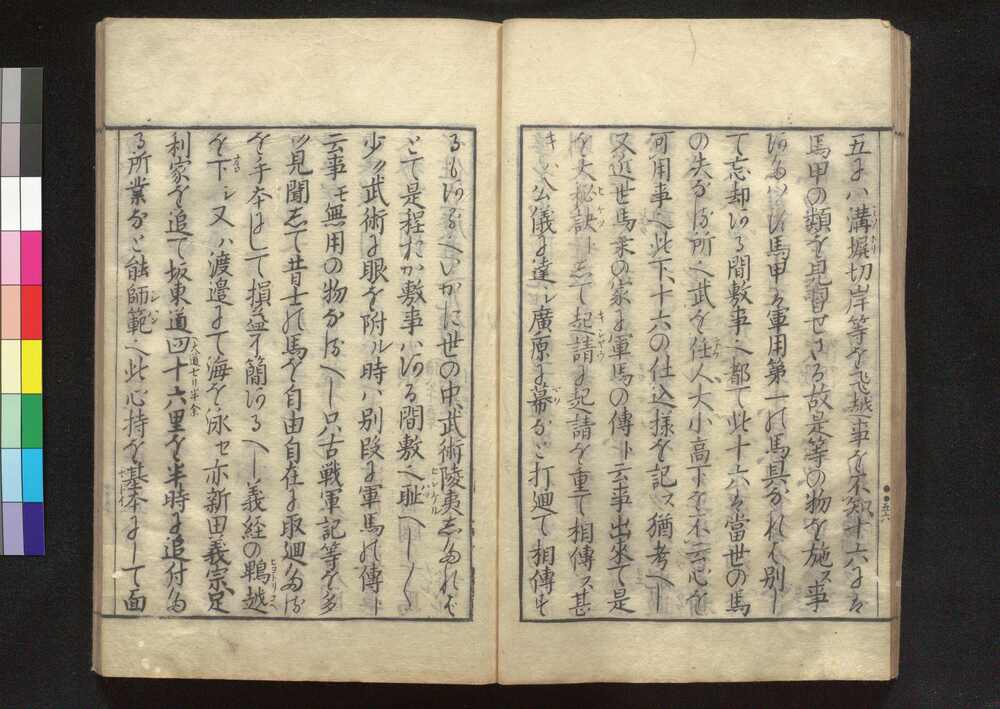 五にハ溝堀切岸等を飛越事を不知十六にハ
馬甲の類を見習せさる故是等の物を施ス事
あたハす馬甲ハ軍用第一の馬具なれハ別し
て忘却ある間敷事也都て此十六ハ當世の馬
の失なる所也武を任人大小高下を不云心を
可用事也此下十六の仕込様を記ス猶考へし
又近世馬乗の家に軍馬の傳ト云事出来て是
を大秘訣トして起請に起請を重て相傳ス甚
キハ公儀に達し廣原に幕など打廻て相傳す
るもあるへいかた世の中武術陵夷したれは
とて是程おか敷事ハある間敷也耻へし〱
少ク武術に眼を附ル時ハ別段に軍馬の傳ト
云事モ無用の物なるへし只古戦軍記等を多
ク見聞して昔士の馬を自由自在に取廻たる
を手本にして損益了簡あるへし義経の鵯越
を下シ又ハ渡邉にて海を泳セ亦新田義宗足
利家を追て坂東道四十六里を半時に追付た
る所業など能師範也此心持を基本にして面
五六